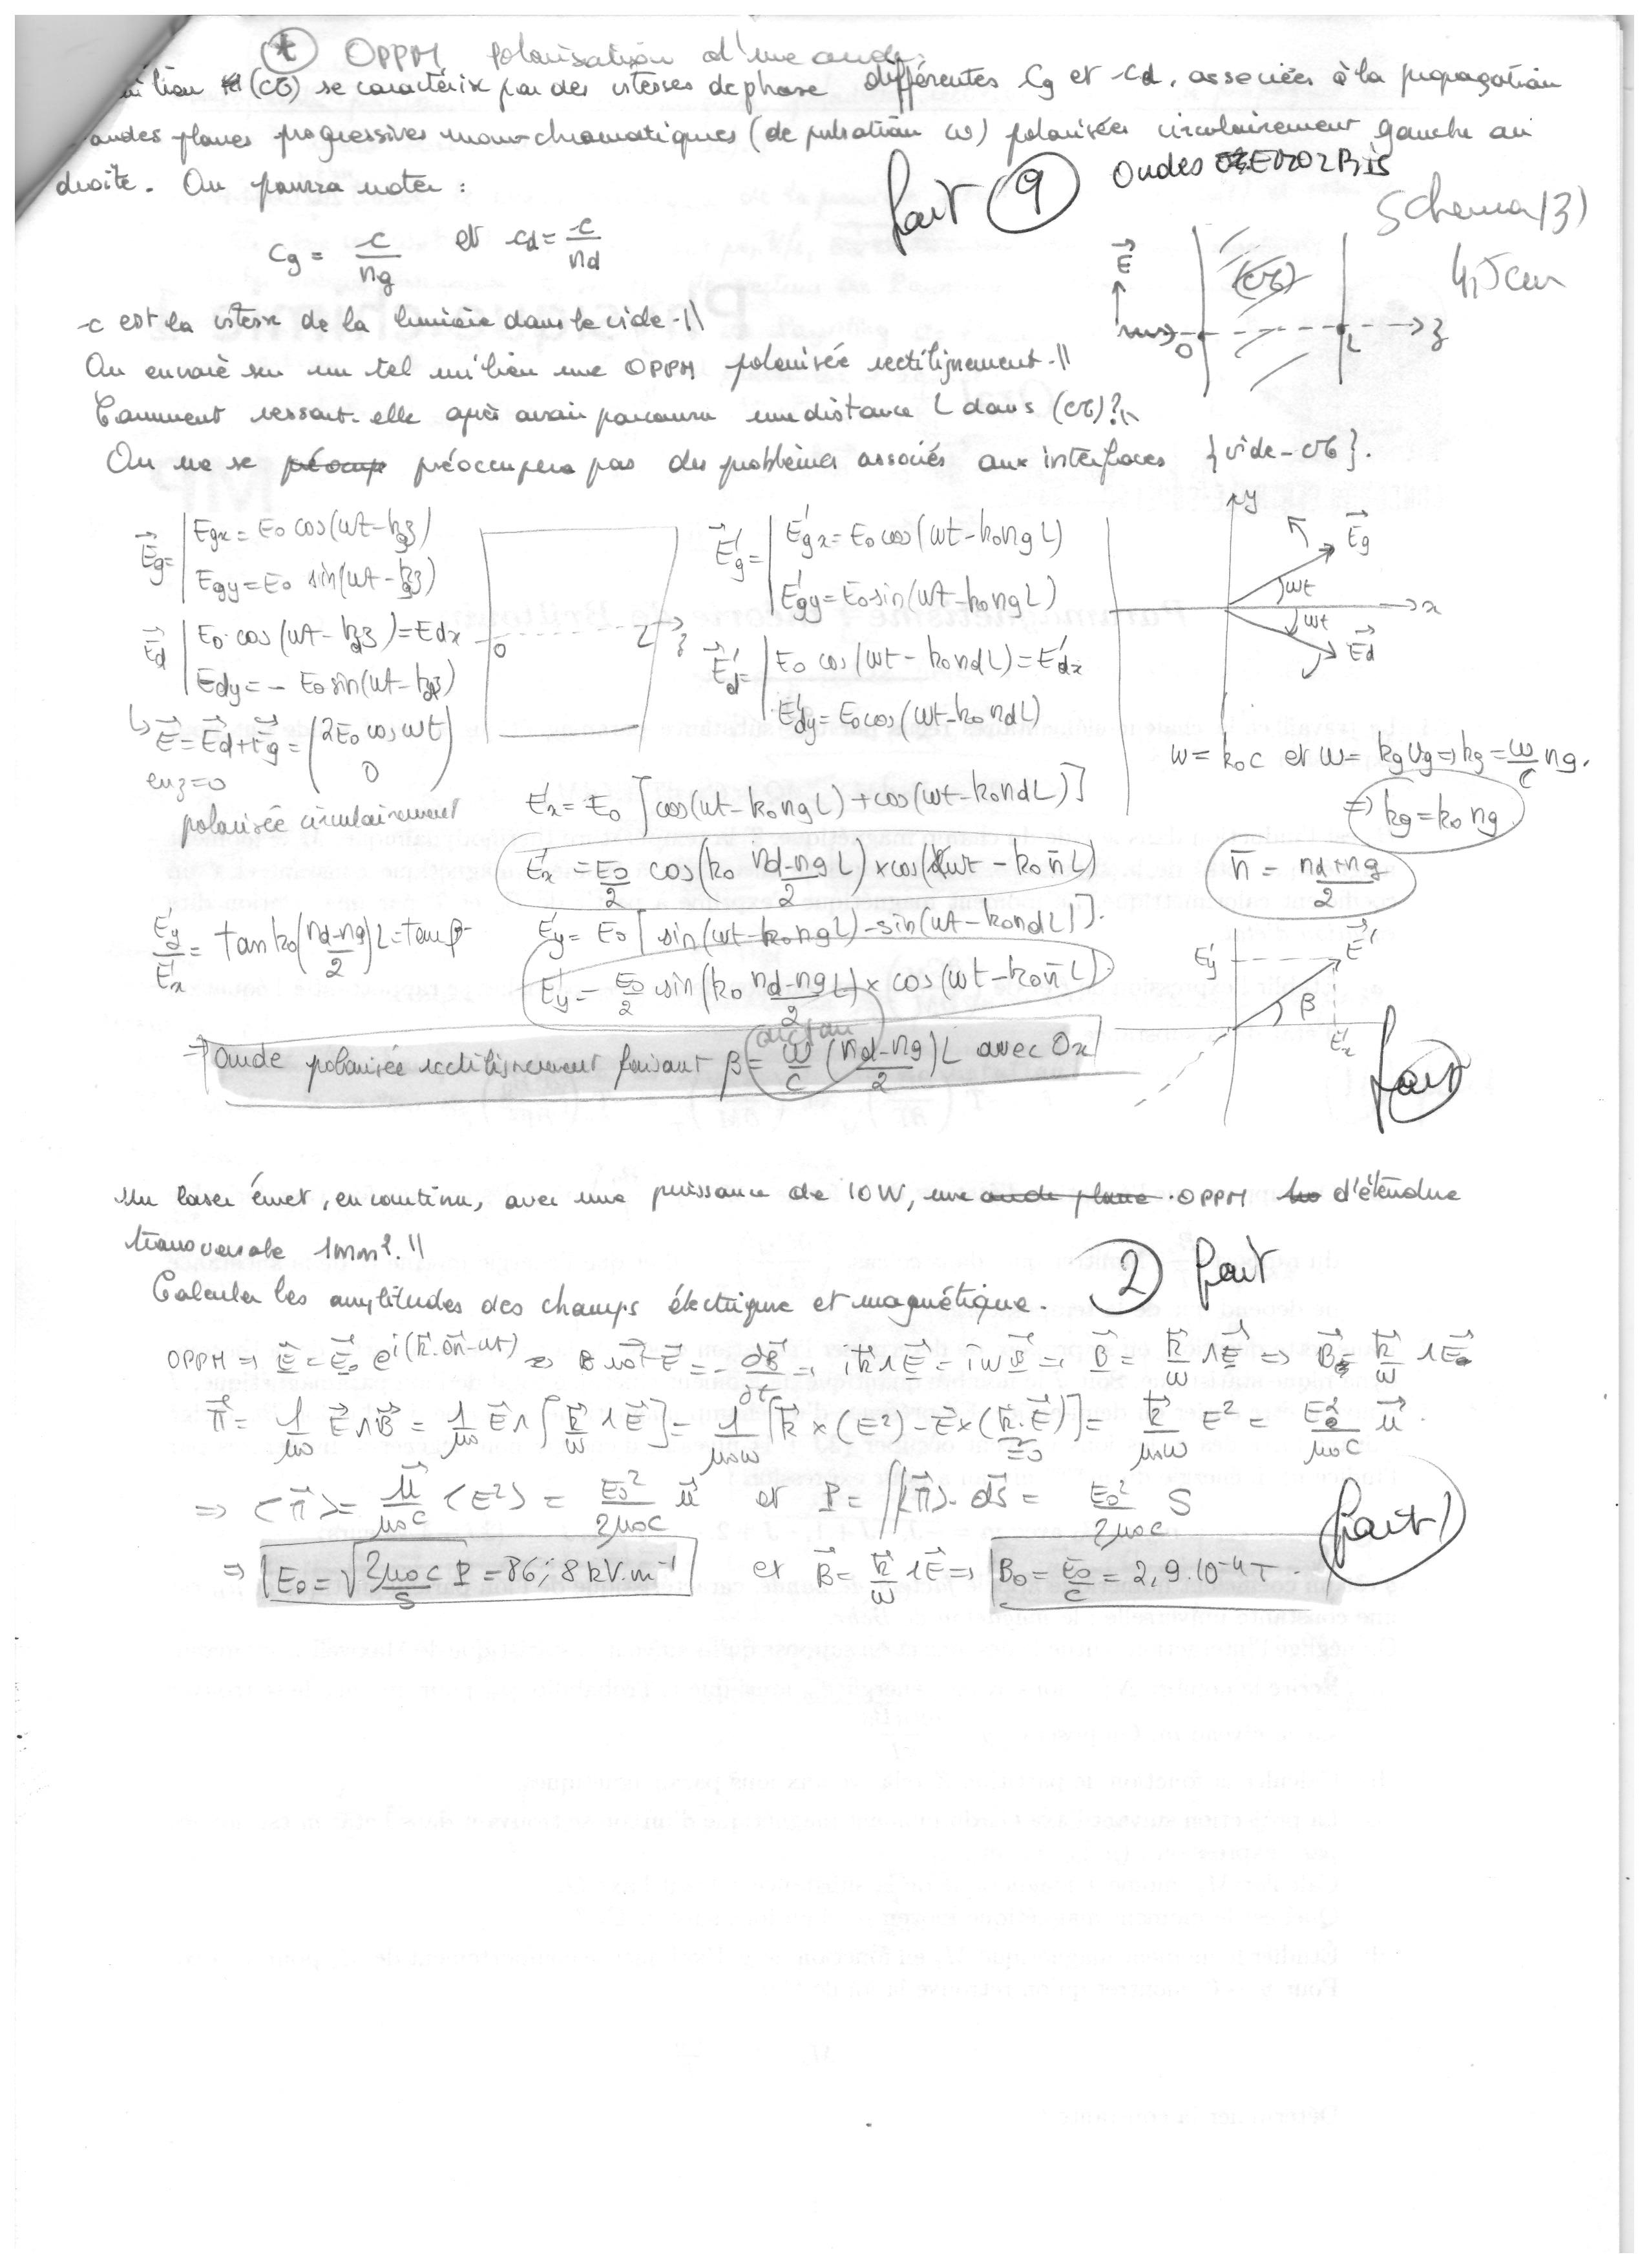 * OPPM polarisation d'une onde,
(M) se caractérise par des vitesses de phase différentes Cg et cd, associées à la propagation
ondes planes progressives monochromatiques (de pulsation ω) polarisées circulairement gauche ou
droite. On pourra noter :
fait 9 Ondes EM02Bis
Schema 13)
4,5cm
Cg = c/ng et cd = c/nd
E (M) O L z
c est la vitesse de la lumière dans le vide. //
On envoie sur un tel milieu une OPPM polarisée rectilignement. //
Comment ressort-elle après avoir parcouru une distance L dans (M)?
On ne se préoccupera pas des problèmes associés aux interfaces {vide-M}.
Eg = | Egx = E0 cos(ωt-kgz)
Egy = E0 sin(ωt-kgz)
Ed | E0 cos(ωt-kdz) = Edx
Edy = - E0 sin(ωt-kdz)
↳ E = Ed+Eg = (2E0 cos ωt
0)
en z=0
polarisée circulairement
O L z
E'g = | E'gx = E0 cos(ωt-k0ngL)
E'gy = E0 sin(ωt-k0ngL)
E'd = | E0 cos(ωt-k0ndL) = E'dx
E'dy = E0 cos(ωt-k0ndL)
y Eg ωt x ωt Ed
ω = k0c et ω = kgVg ⇒ kg = ω/c ng.
⇒ kg = k0 ng
E'x = E0 [cos(ωt-k0ngL)+cos(ωt-k0ndL)]
E'x = E0/2 cos(k0 (nd-ng)/2 L) × cos(ωt-k0n̄L)
n̄ = (nd+ng)/2
E'y/E'x = tan k0((nd-ng)/2)L = tan β
E'y = E0 [sin(ωt-k0ngL)-sin(ωt-k0ndL)].
E'y = E0/2 sin(k0 (nd-ng)/2 L) × cos(ωt-k0n̄L)
E'y E' β E'x
arctan
⇒ Onde polarisée rectilignement faisant β = ω/c ((nd-ng)/2) L avec Ox
fait
Un laser émet, en continu, avec une puissance de 10W, une onde plane OPPM d'étendue
transversale 1mm². //
2 fait
Calculer les amplitudes des champs électrique et magnétique.
OPPM ⇒ E = E0 e^i(k.OM-ωt) ⇒ rot E = -∂B/∂t ⇒ ik∧E = iωB ⇒ B = k/ω ∧E ⇒ B0 = k/ω ∧E0
Π = 1/μ0 E∧B = 1/μ0 E∧[k/ω ∧E] = 1/μ0ω [k×(E²)-E×(k.E)] = k/μ0ω E² = E0²/μ0c u.
=0
⇒ <Π> = u/μ0c <E²> = E0²/2μ0c u et P = ∬<Π>.dS = E0²/2μ0c S
fait)
⇒ E0 = √(2μ0c/S P) = 86,8 kV.m⁻¹ et B = k/ω ∧E ⇒ B0 = E0/c = 2,9.10⁻⁴T.